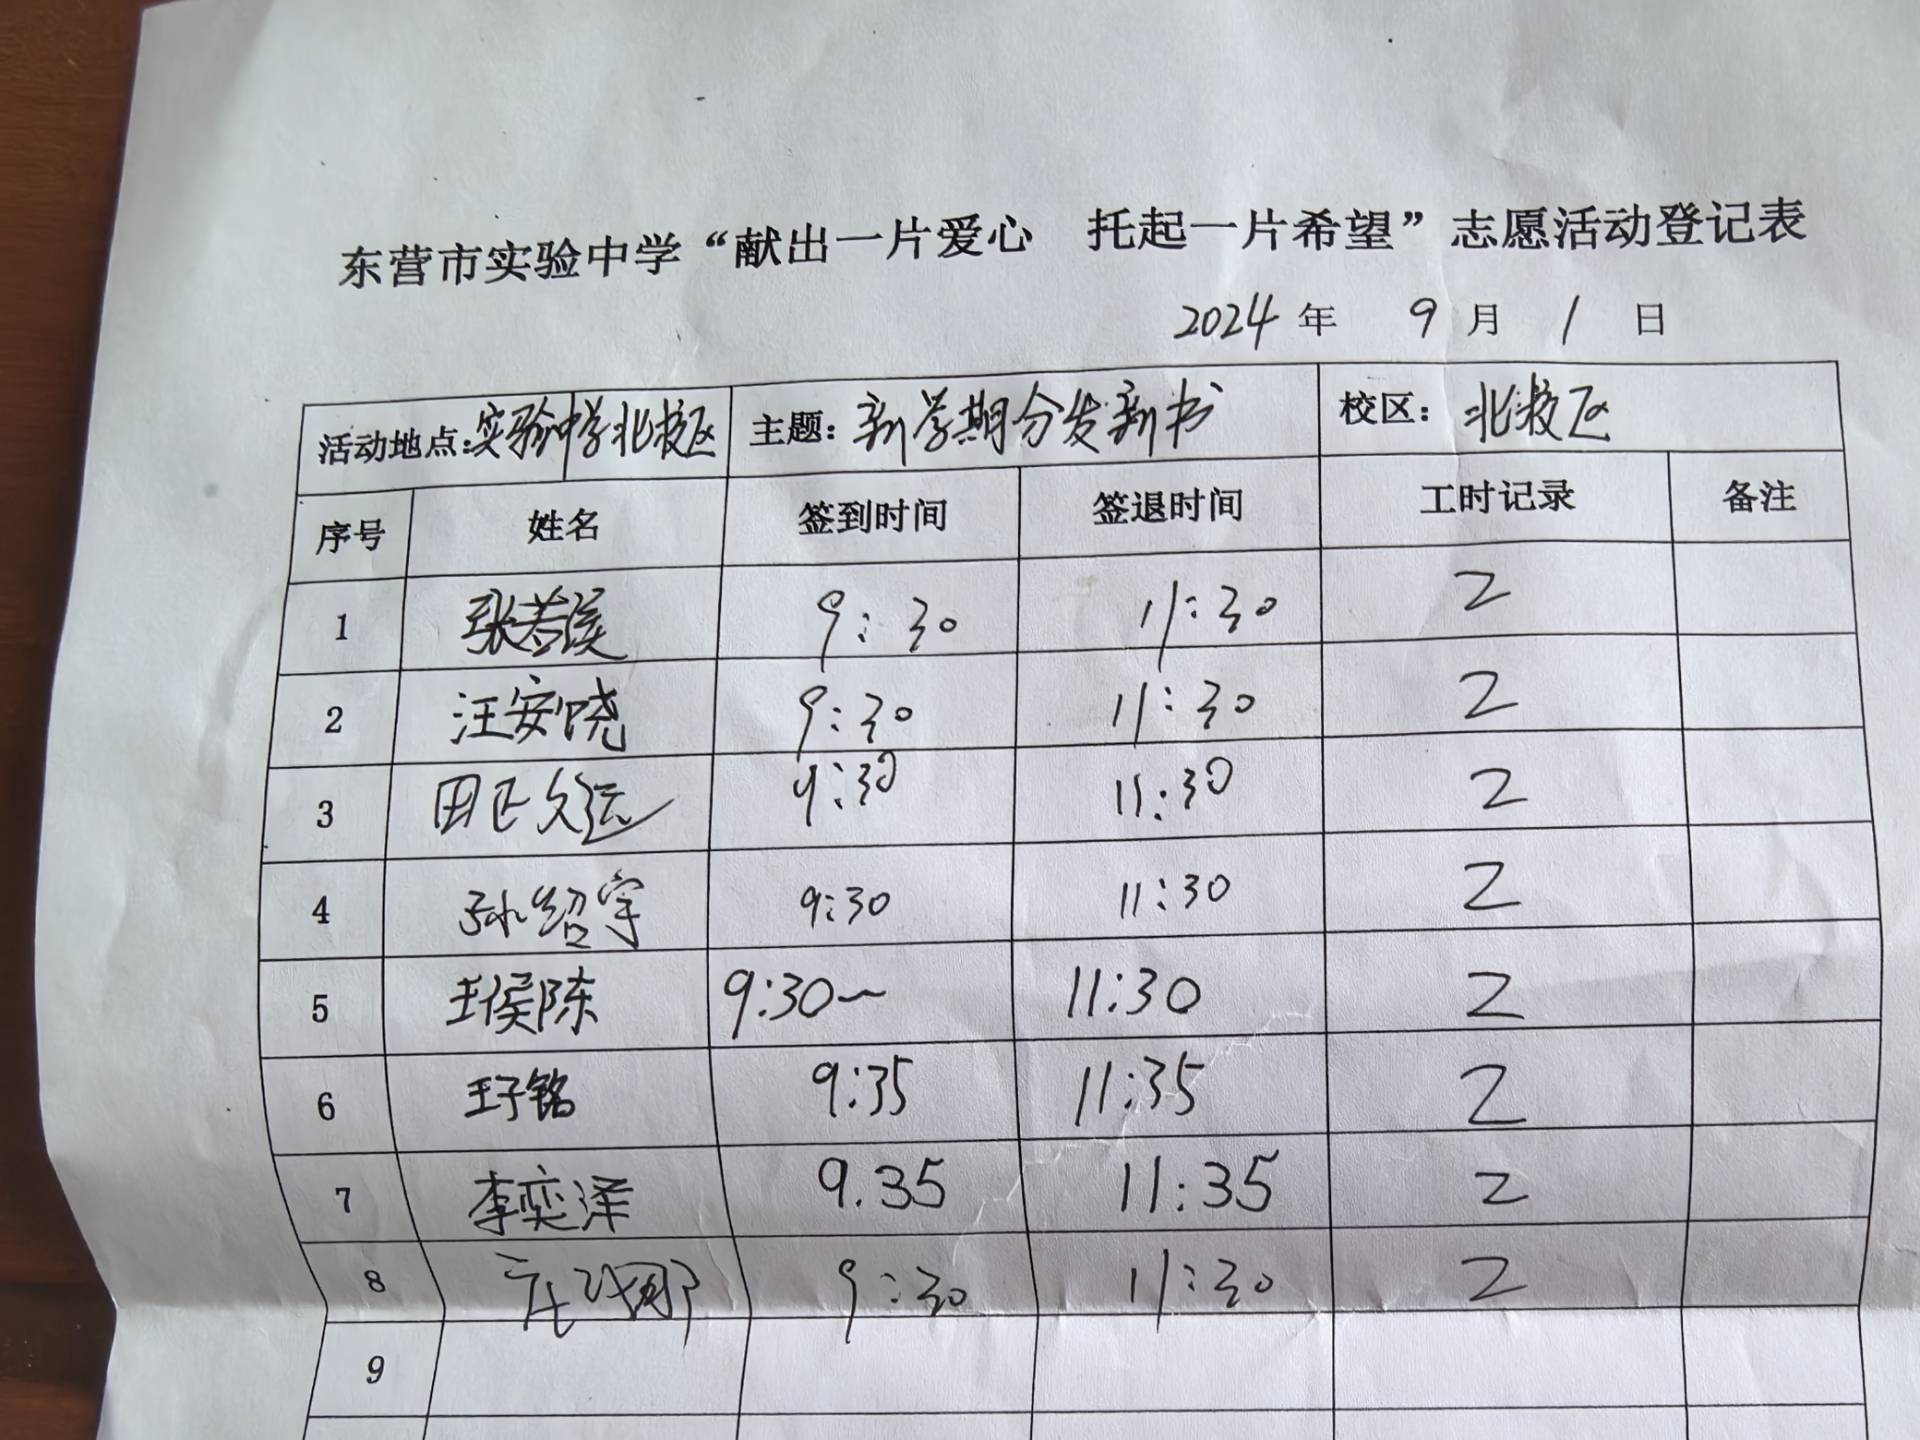 东营市实验中学“献出一片爱心 托起一片希望”志愿活动登记表
2024 年 9 月 1 日
活动地点:实验中学北校区 主题:新学期分发新书 校区:北校区
序号 姓名 签到时间 签退时间 工时记录 备注
1 张若溪 9:30 11:30 2
2 汪安晓 9:30 11:30 2
3 田 文远 9:30 11:30 2
4 孙绍宇 9:30 11:30 2
5 王侯陈 9:30~ 11:30 2
6 王子铭 9:35 11:35 2
7 李奕泽 9.35 11:35 2
8 9:30 11:30 2
9